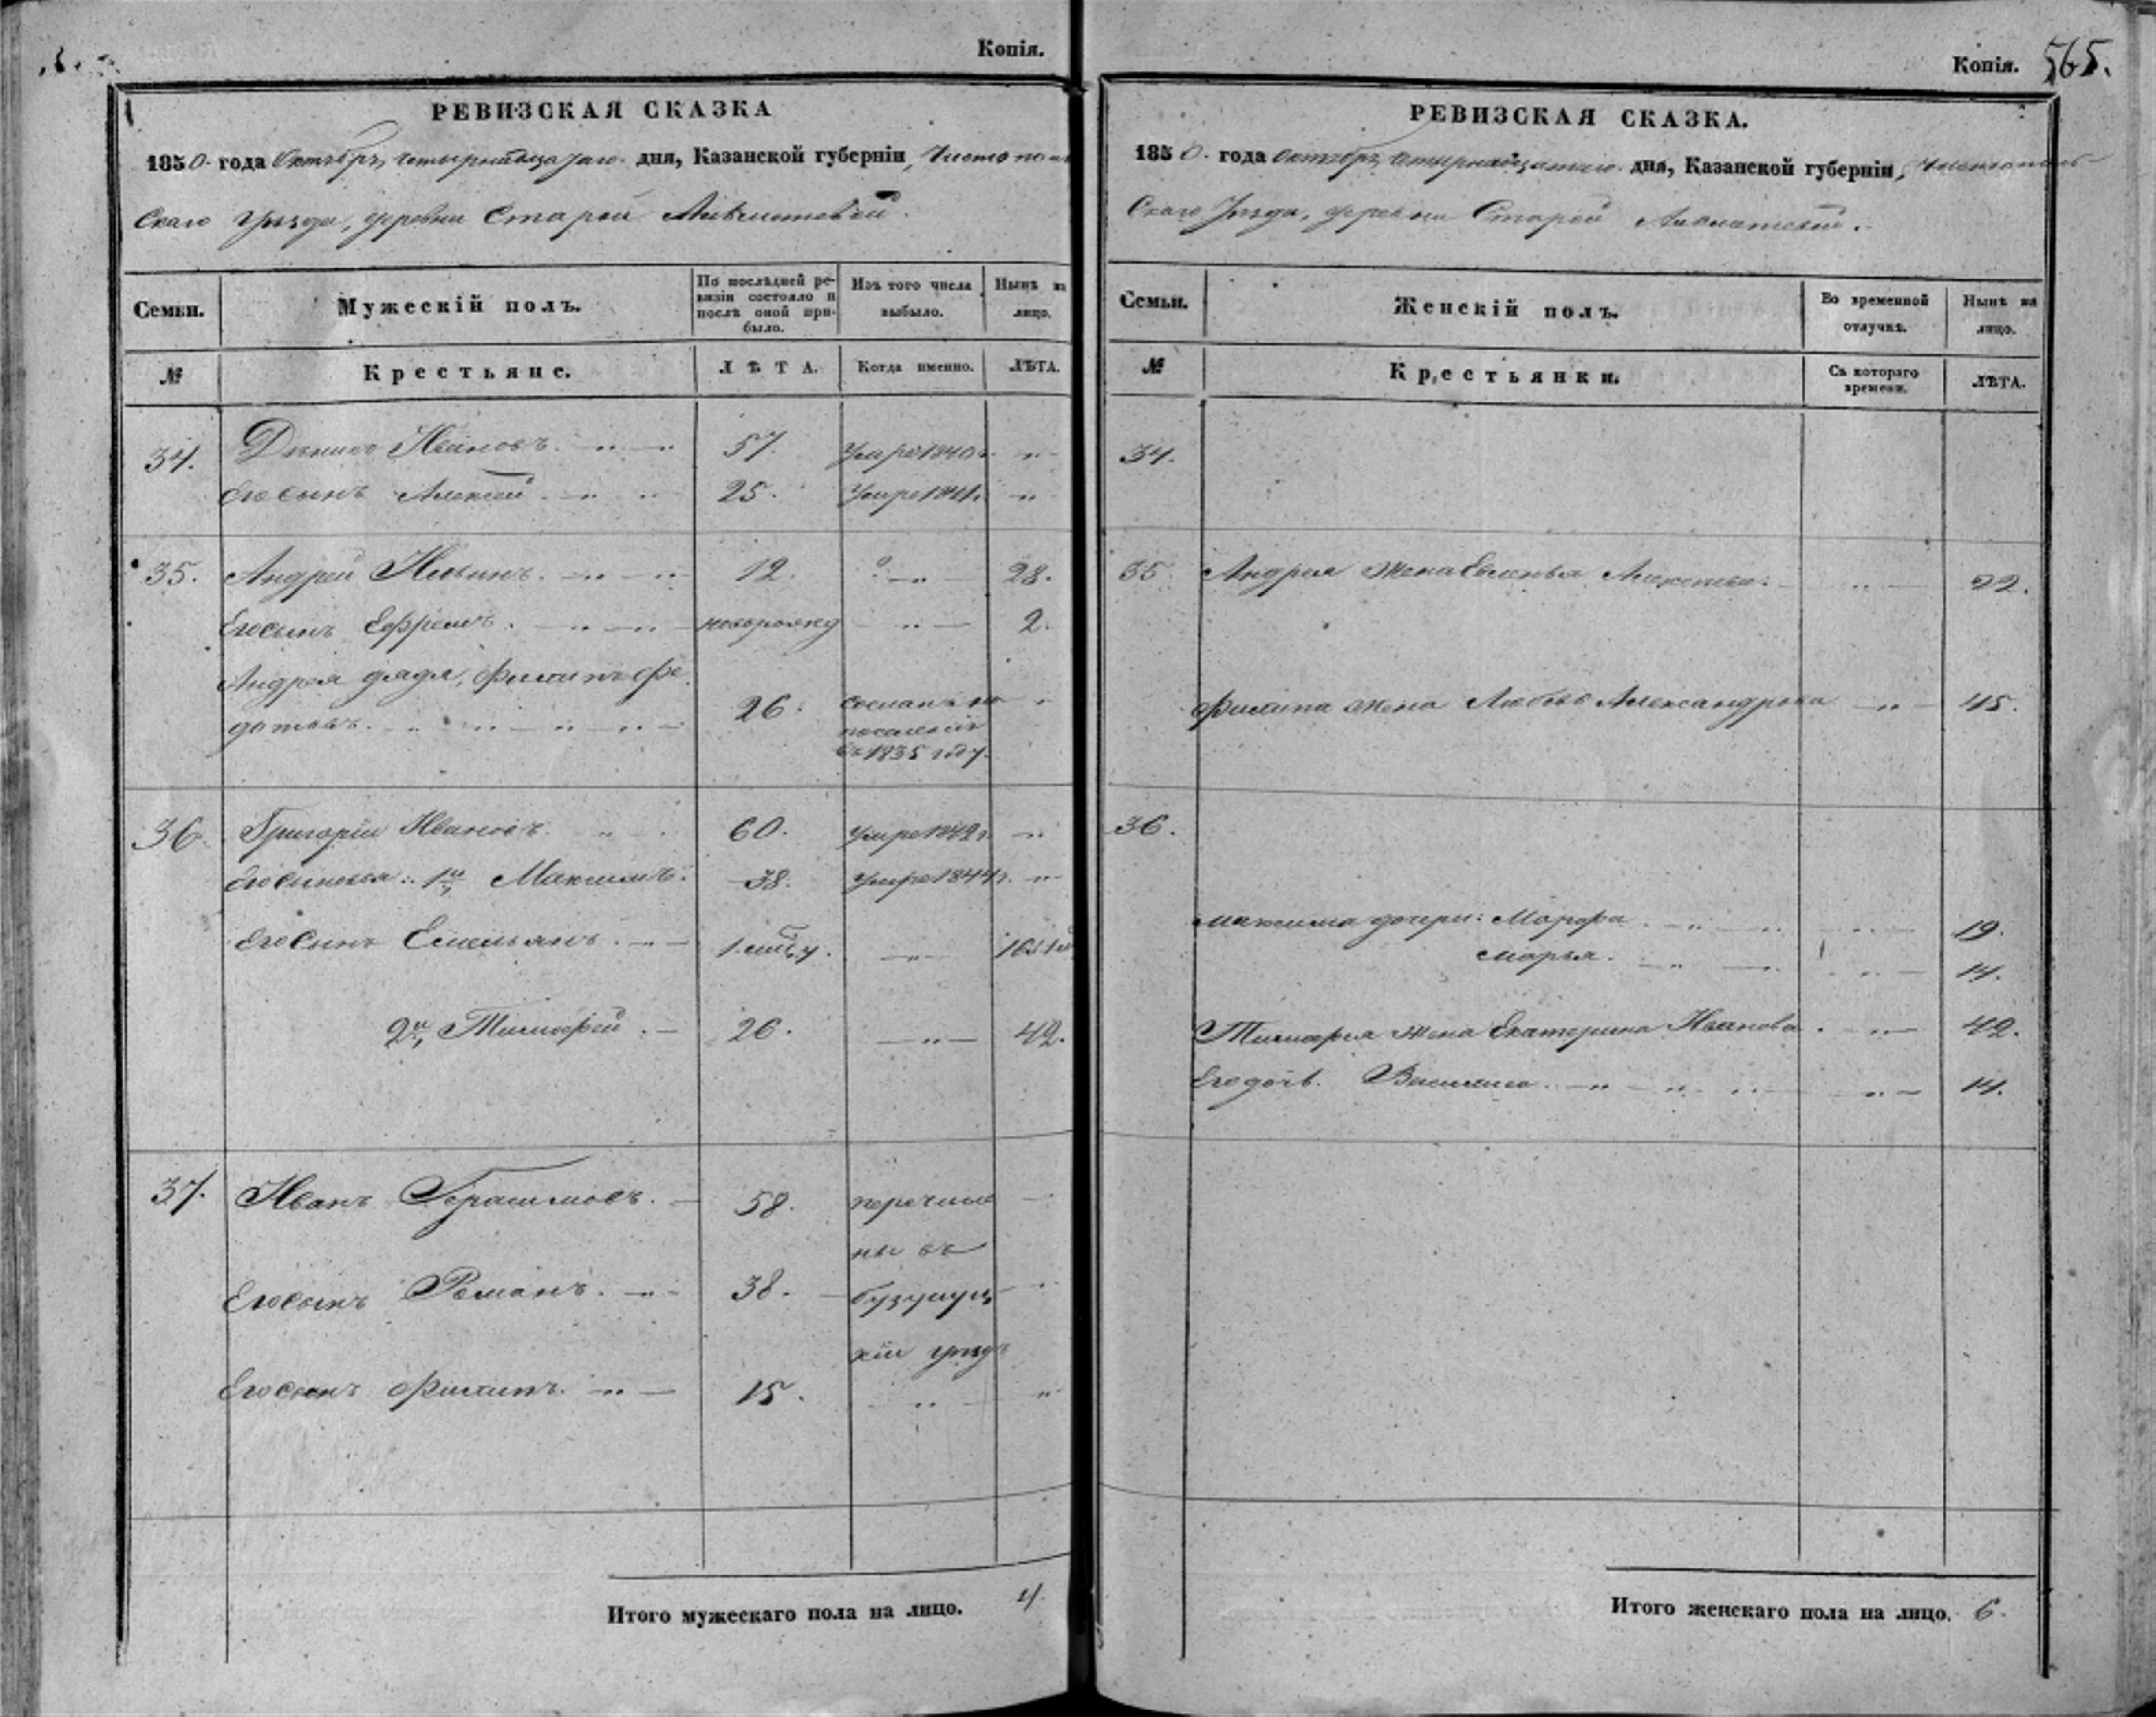 Копія.
РЕВИЗСКАЯ СКАЗКА
1850. года Октября четырнадцатаго дня, Казанской губерніи, Чистополь
скаго Уѣзда, деревни Старой
Семьи.
Мужескій полъ.
По послѣдней ре-
визіи состояло и
послѣ оной при-
было.
Изъ того числа
выбыло.
Нынѣ на
лицо.
№
Крестьяне.
ЛѢТА.
Когда именно.
ЛѢТА.
34. Ивановъ. 57. Умре 1840 г.
Его сынъ Алексей 25. Умре 1841.
35. Андрей 12. 28.
Его сынъ Ефремъ. новорожд 2.
Андрея дядя, Филипъ Фе
дотовъ. 26. сосланъ на
поселеніе
въ 1835 году.
36. Григорій Ивановъ. 60. умре 1842 г.
Его сыновья: 1й Максимъ. 38. умре 1844 г.
Его сынъ Емельянъ. 1.
2й, Тимофей. 26. 42.
37. Иванъ Герасимовъ. 58. перечисле
ны въ
Его сынъ Романъ. 38. бузулуц
кій уѣздъ
Его сынъ Филипъ. 15.
Итого мужескаго пола на лицо. 4.
Копія. 565.
РЕВИЗСКАЯ СКАЗКА.
1850. года Октября четырнадцатаго дня, Казанской губерніи, Чистополь-
скаго Уѣзда, деревни Старой
Семьи.
Женскій полъ.
Во временной
отлучкѣ.
Нынѣ на
лицо.
№
Крестьянки.
Съ котораго
времени.
ЛѢТА.
34.
35. Андрея жена 22.
Филипа жена Любовь Александрова 45.
36.
Максима дочери: Марфа 19.
Марья. 14.
Тимофея жена Екатерина Иванова. 42.
Его дочь. Василиса. 14.
Итого женскаго пола на лицо. 6.